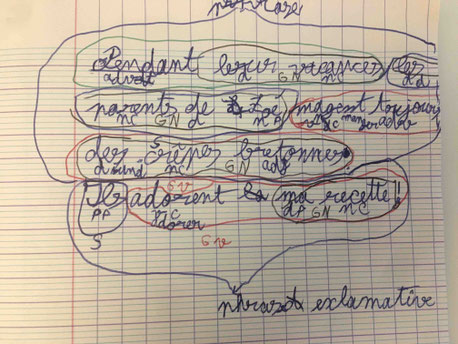 Pendant leur vacances, les
d GN nc
parents de Zoé mangent toujour
nc GN d nP manger adv
des crêpes bretonnes.
d nc GN adj
GV
Ils adorent ma recette !
PP adorer dP GN nc
S GV
phrase exclamative